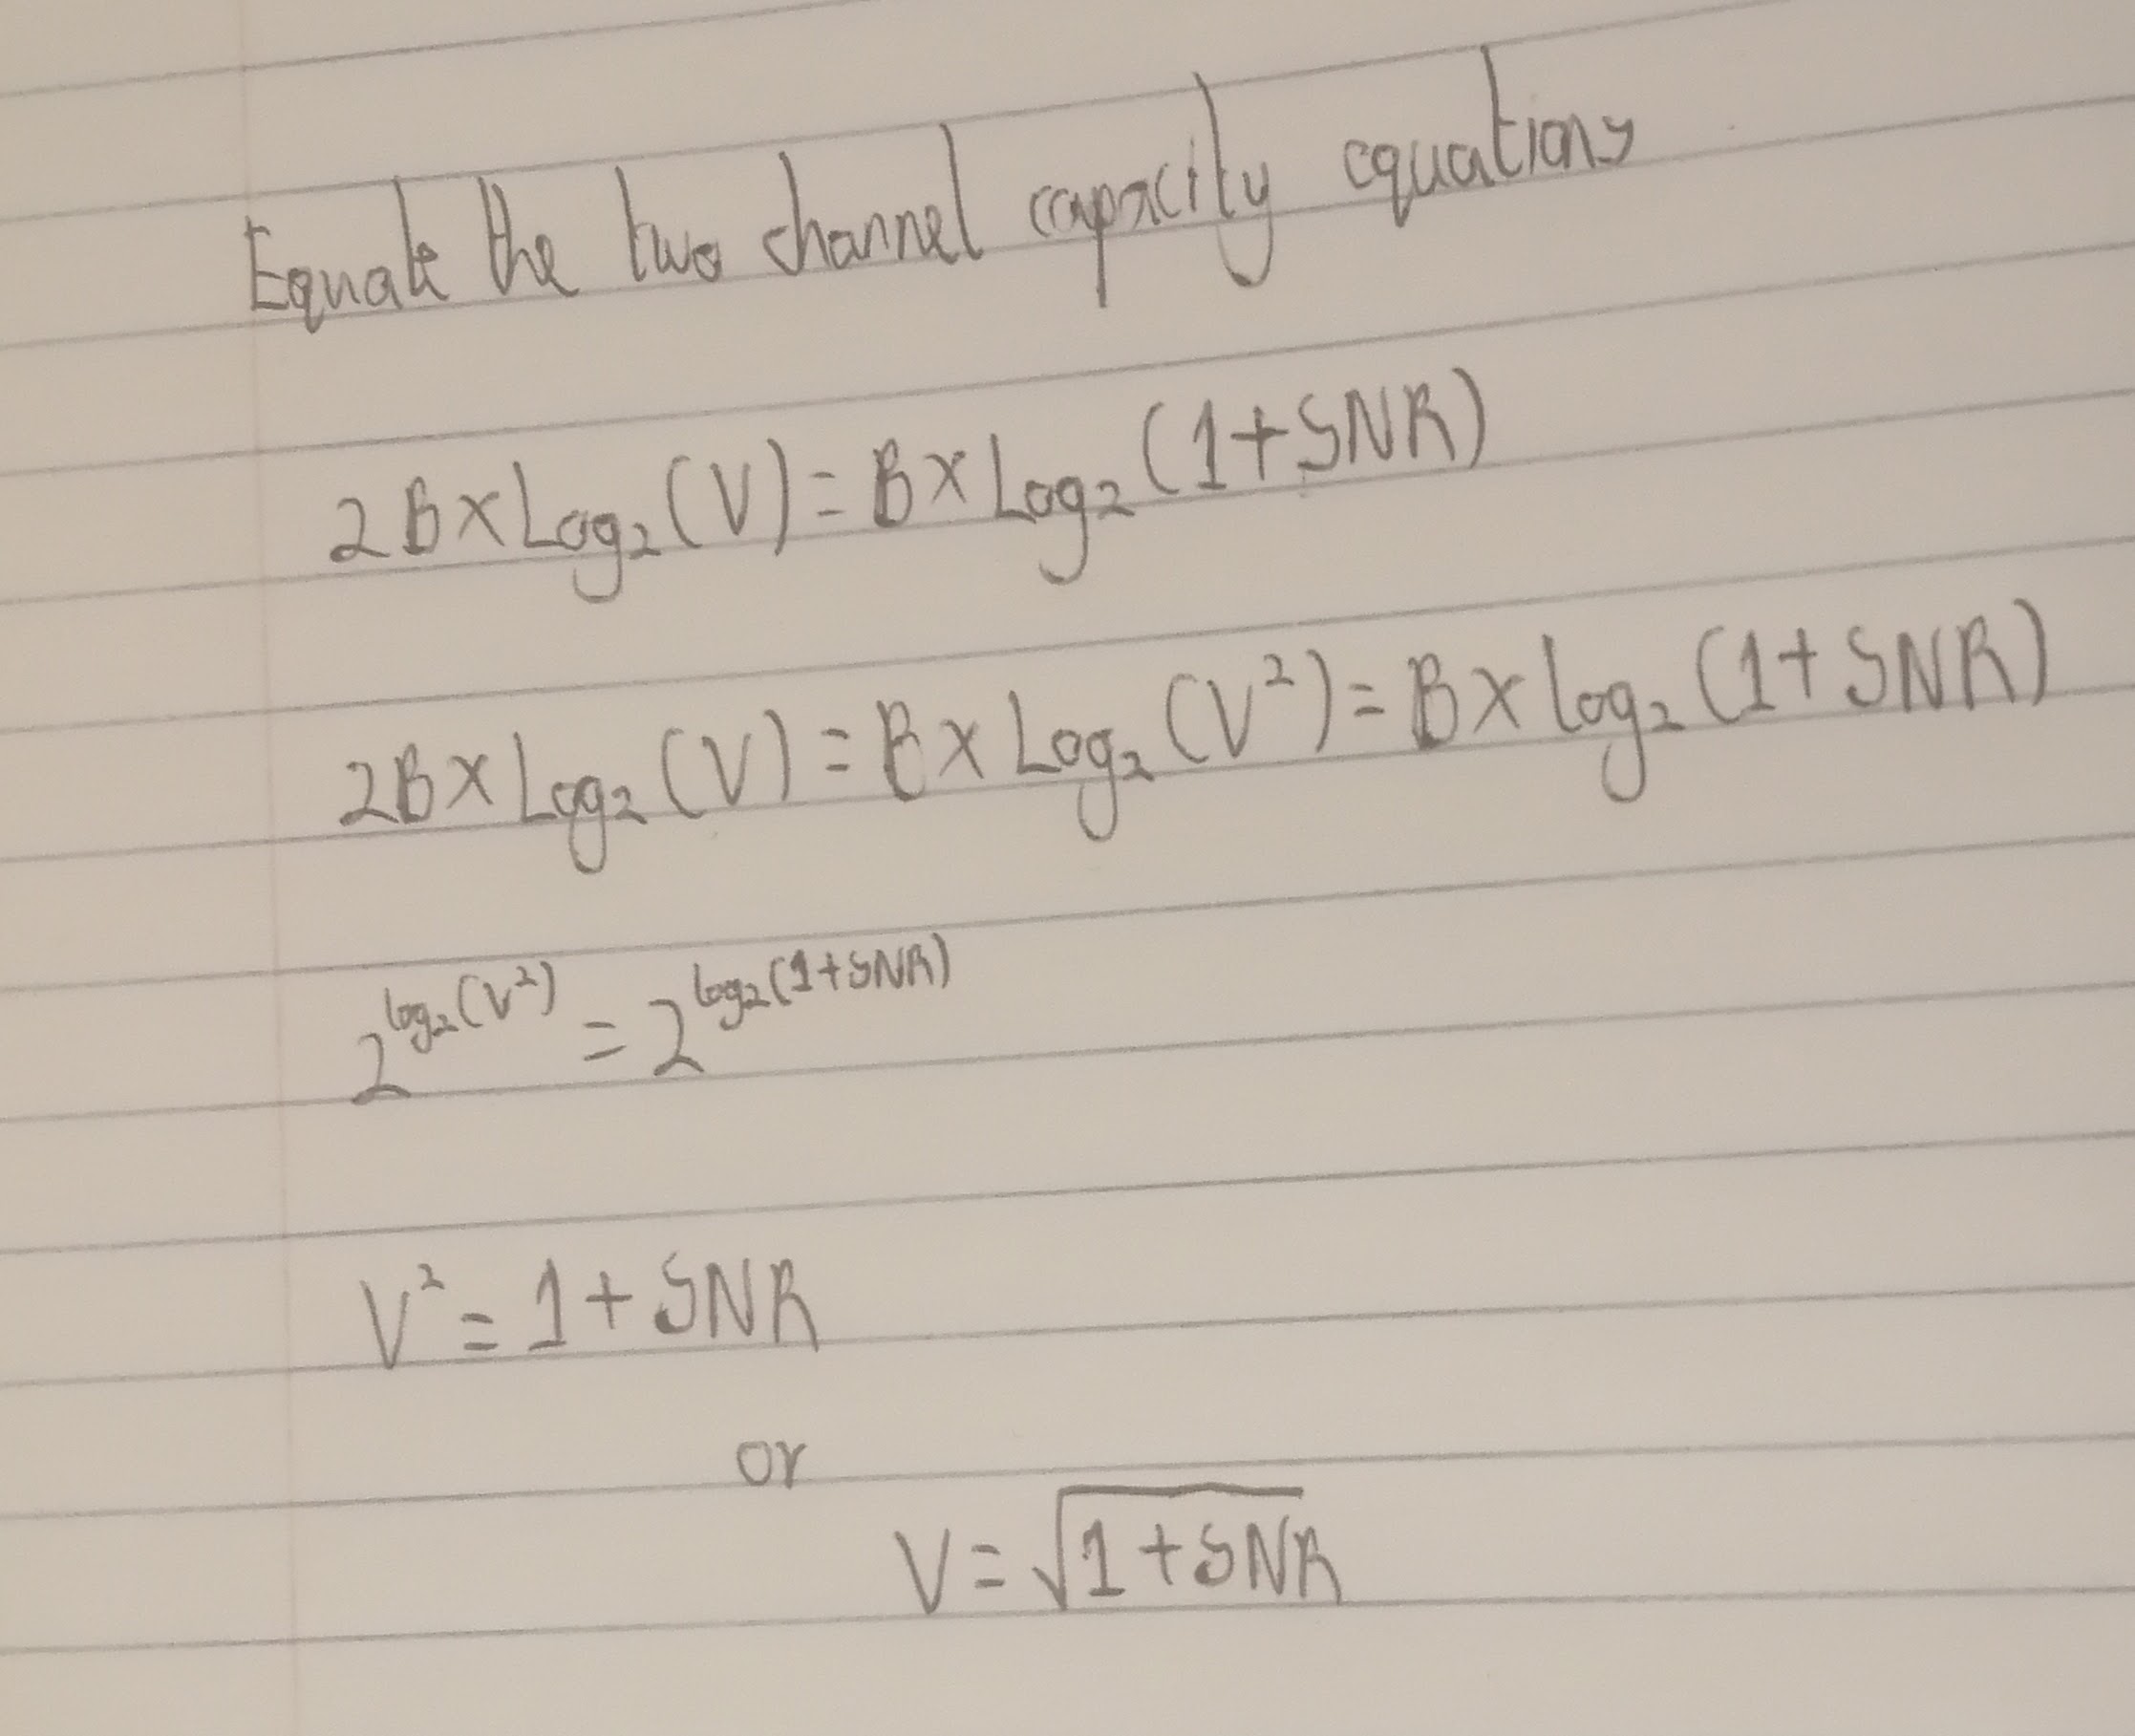 Equate the two channel capacity equations
2B×Log₂(V)=B×Log₂(1+SNR)
2B×Log₂(V)=B×Log₂(V²)=B×log₂(1+SNR)
2^log₂(V²) = 2^log₂(1+SNR)
V²=1+SNR
or
V=√1+SNR